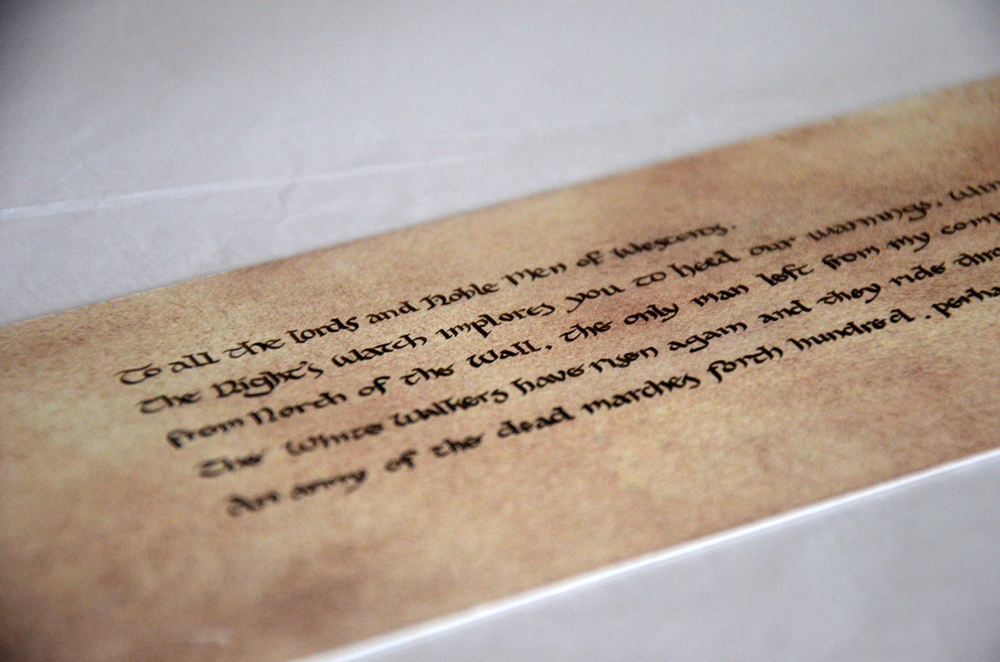 To all the lords and Noble Men of Westeros,
The Night's Watch implores you to heed our warnings.
from North of the Wall, the only man left from my
The White Walkers have risen again and they ride
An army of the dead marches forth hundred, perha